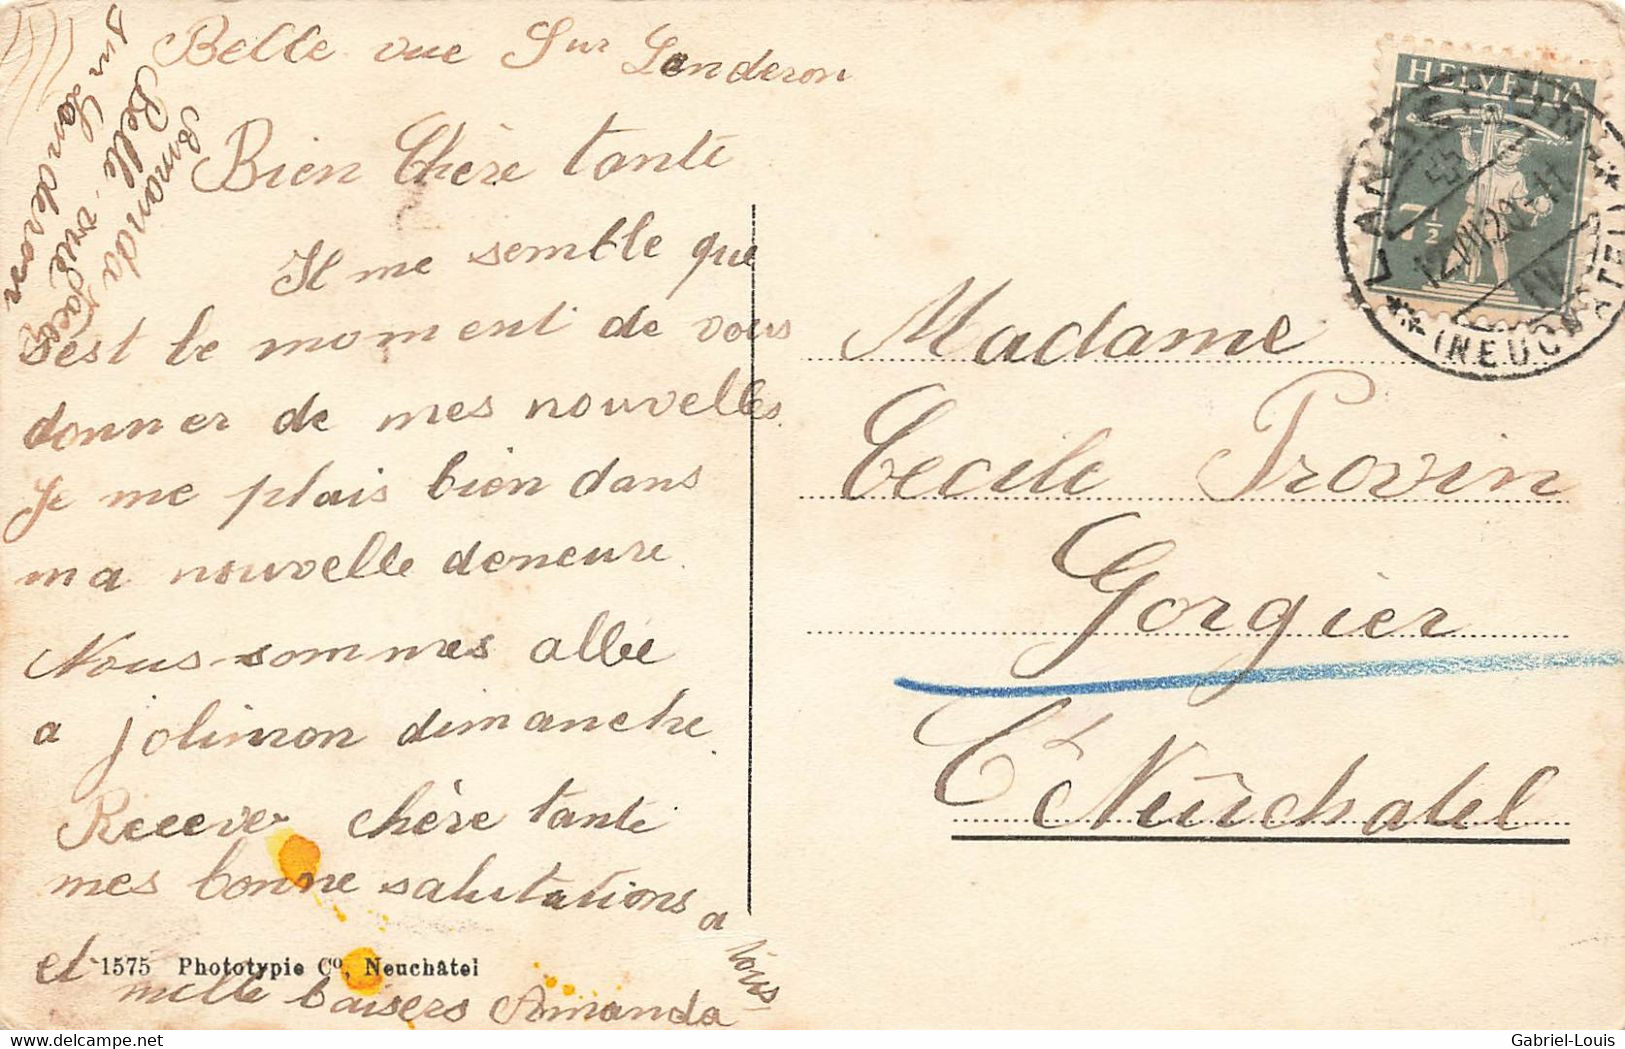 Belle vue Sur Landeron
Bien Chère tante
Il me semble que
s'est le moment de vous
donner de mes nouvelles.
Je me plais bien dans
ma nouvelle demeure.
Nous sommes allée
a jolimon dimanche.
Recever chère tante
mes bonne salutations a tous
et mille baisers Amanda
1575 Phototypie Co, Neuchâtel
Amanda
Belle vue
sur Landeron
HELVETIA
7½
LANDERON
12.VII.20
(NEUCHATEL)
Madame
Cecile Provin
Gorgier
Ct Neûchatel
delcampe.net
Gabriel-Louis